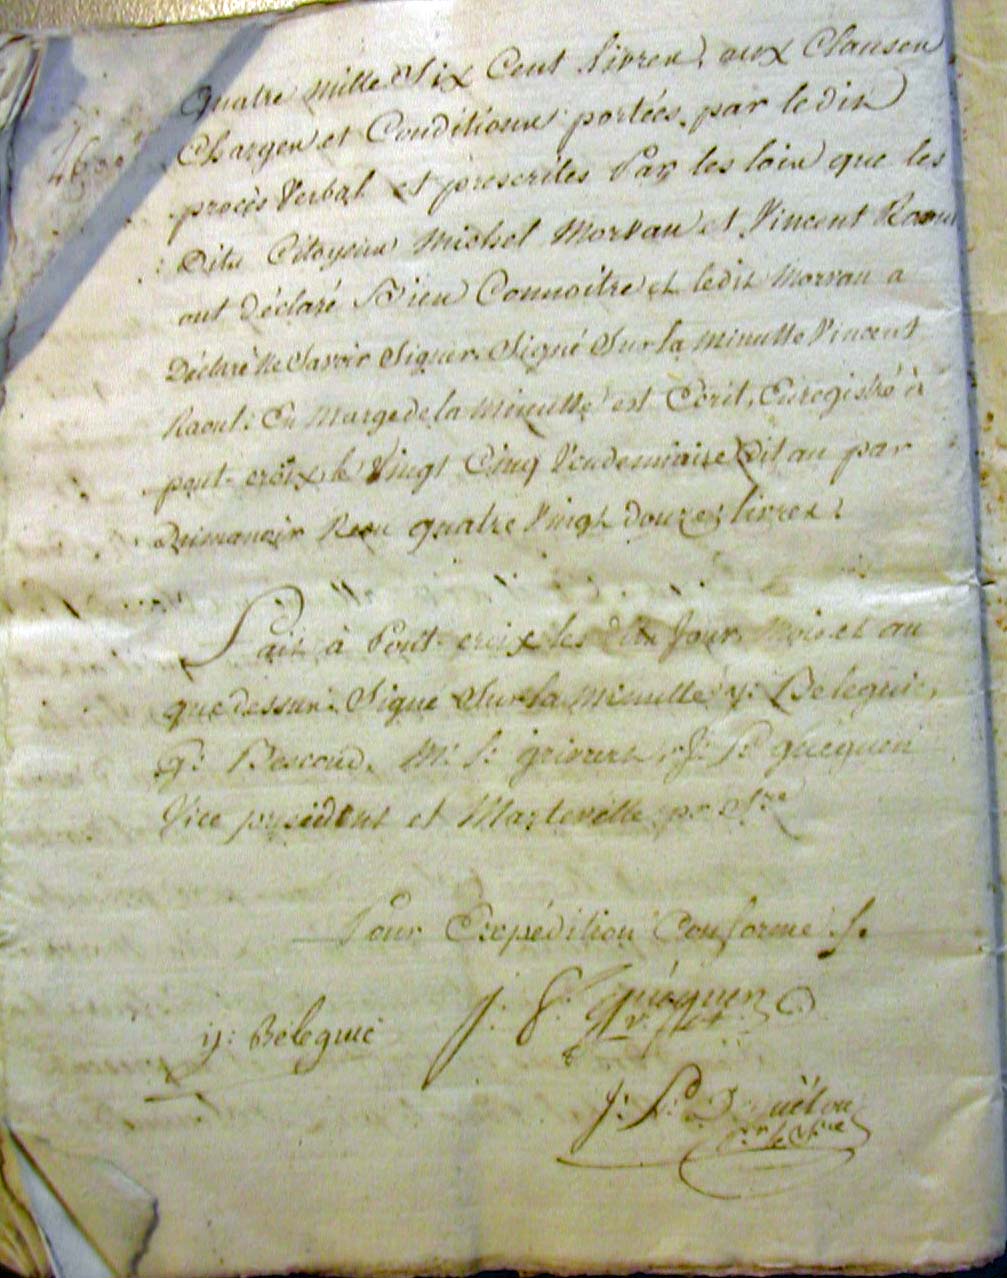 quatre mille Six Cent livres, aux Clauses
4600
Charges et Conditions portées par le dit
procès Verbal et prescrites Par les loix que les
Dits Citoyens Michel Morvan et Vincent Raoul
ont déclaré Bien Connoitre et ledit Morvan a
Déclaré Ne Savoir Signer. Signé Sur la Minutte Vincent
Raoul. En Marge de la Minutte est Ecrit, Enregistré à
pont-croix le Vingt Cinq Vendemiaire Dit an par
Reçu quatre Vingt douze livres.
Fait à Pont-croix les Dits Jour, Mois et an
que dessus. Signé Sur la Minutte y: Béléguic,
g: Bescond, J: P: guéguen
Vice president et Marteville pr Sre
Pour Expédition Conforme /.
J: P: guéguen
y: Béléguic